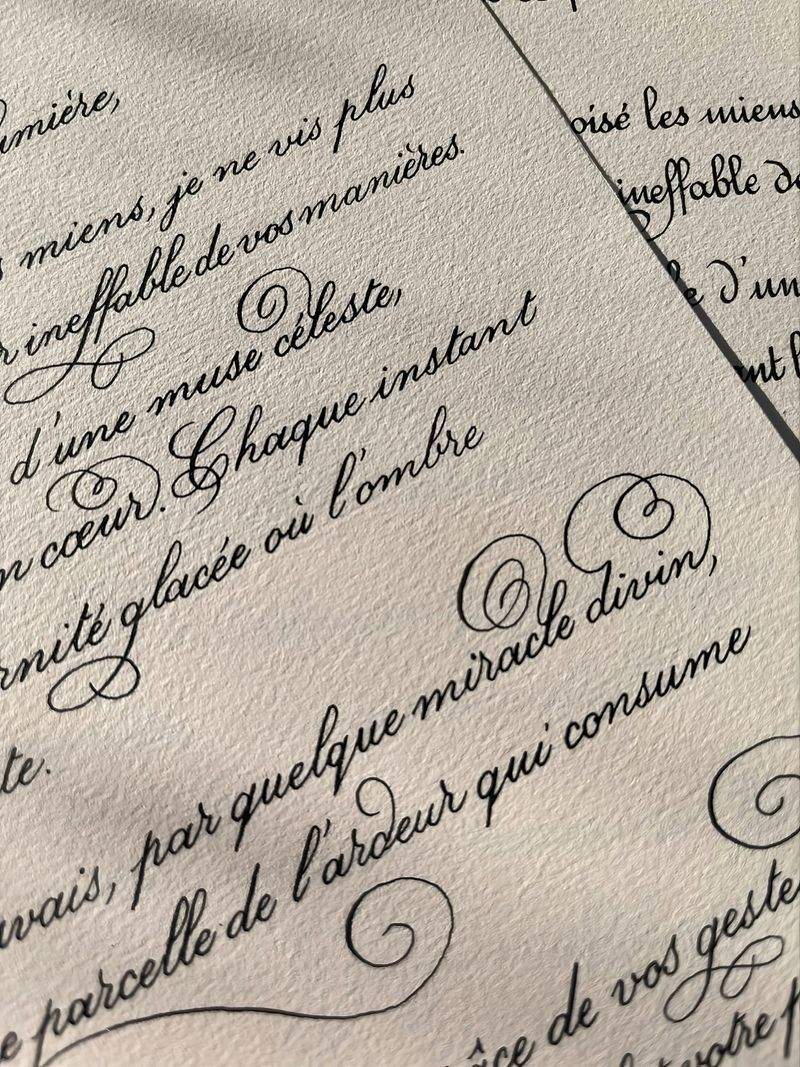 miens, je ne vis plus
ineffable de vos manières.
d'une muse céleste,
cœur. Chaque instant
glacée où l'ombre
par quelque miracle divin,
parcelle de l'ardeur qui consume
de vos geste
votre
les miens
ineffable de
d'un